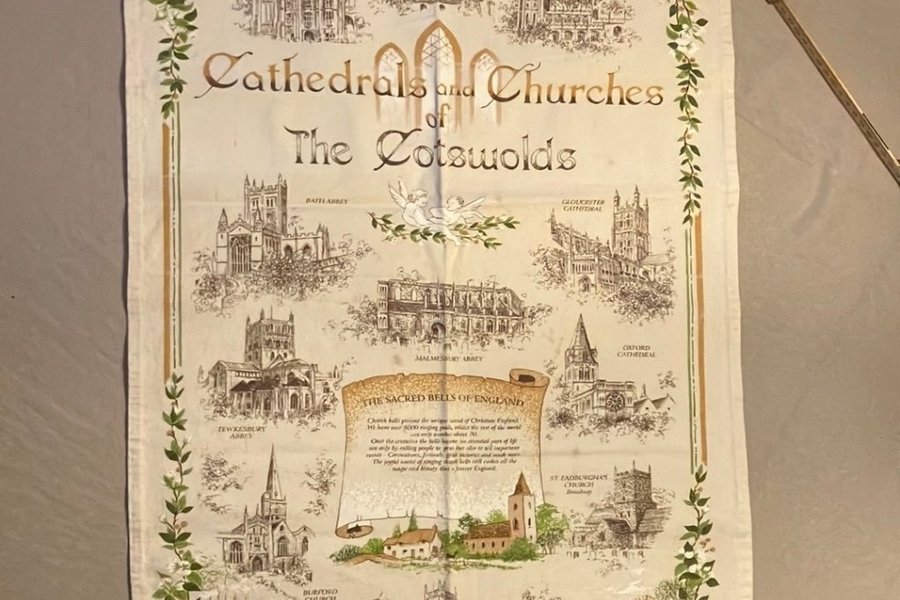 Cathedrals and Churches
of
The Cotswolds
BATH ABBEY
GLOUCESTER
CATHEDRAL
MALMESBURY ABBEY
OXFORD
CATHEDRAL
TEWKESBURY
ABBEY
THE SACRED BELLS OF ENGLAND
Church bells present the unique sound of Christian England.
We have over 5000 ringing peals, whilst the rest of the world
can only number about 70.
Over the centuries the bells became an essential part of life
not only by calling people to pray but also to tell important
events - Coronations, festivals, great victories and much more.
The joyful sound of ringing church bells still evokes all the
magic and beauty that is forever England.
ST. EADBURGHA'S
CHURCH
Broadway
BURFORD
CHURCH